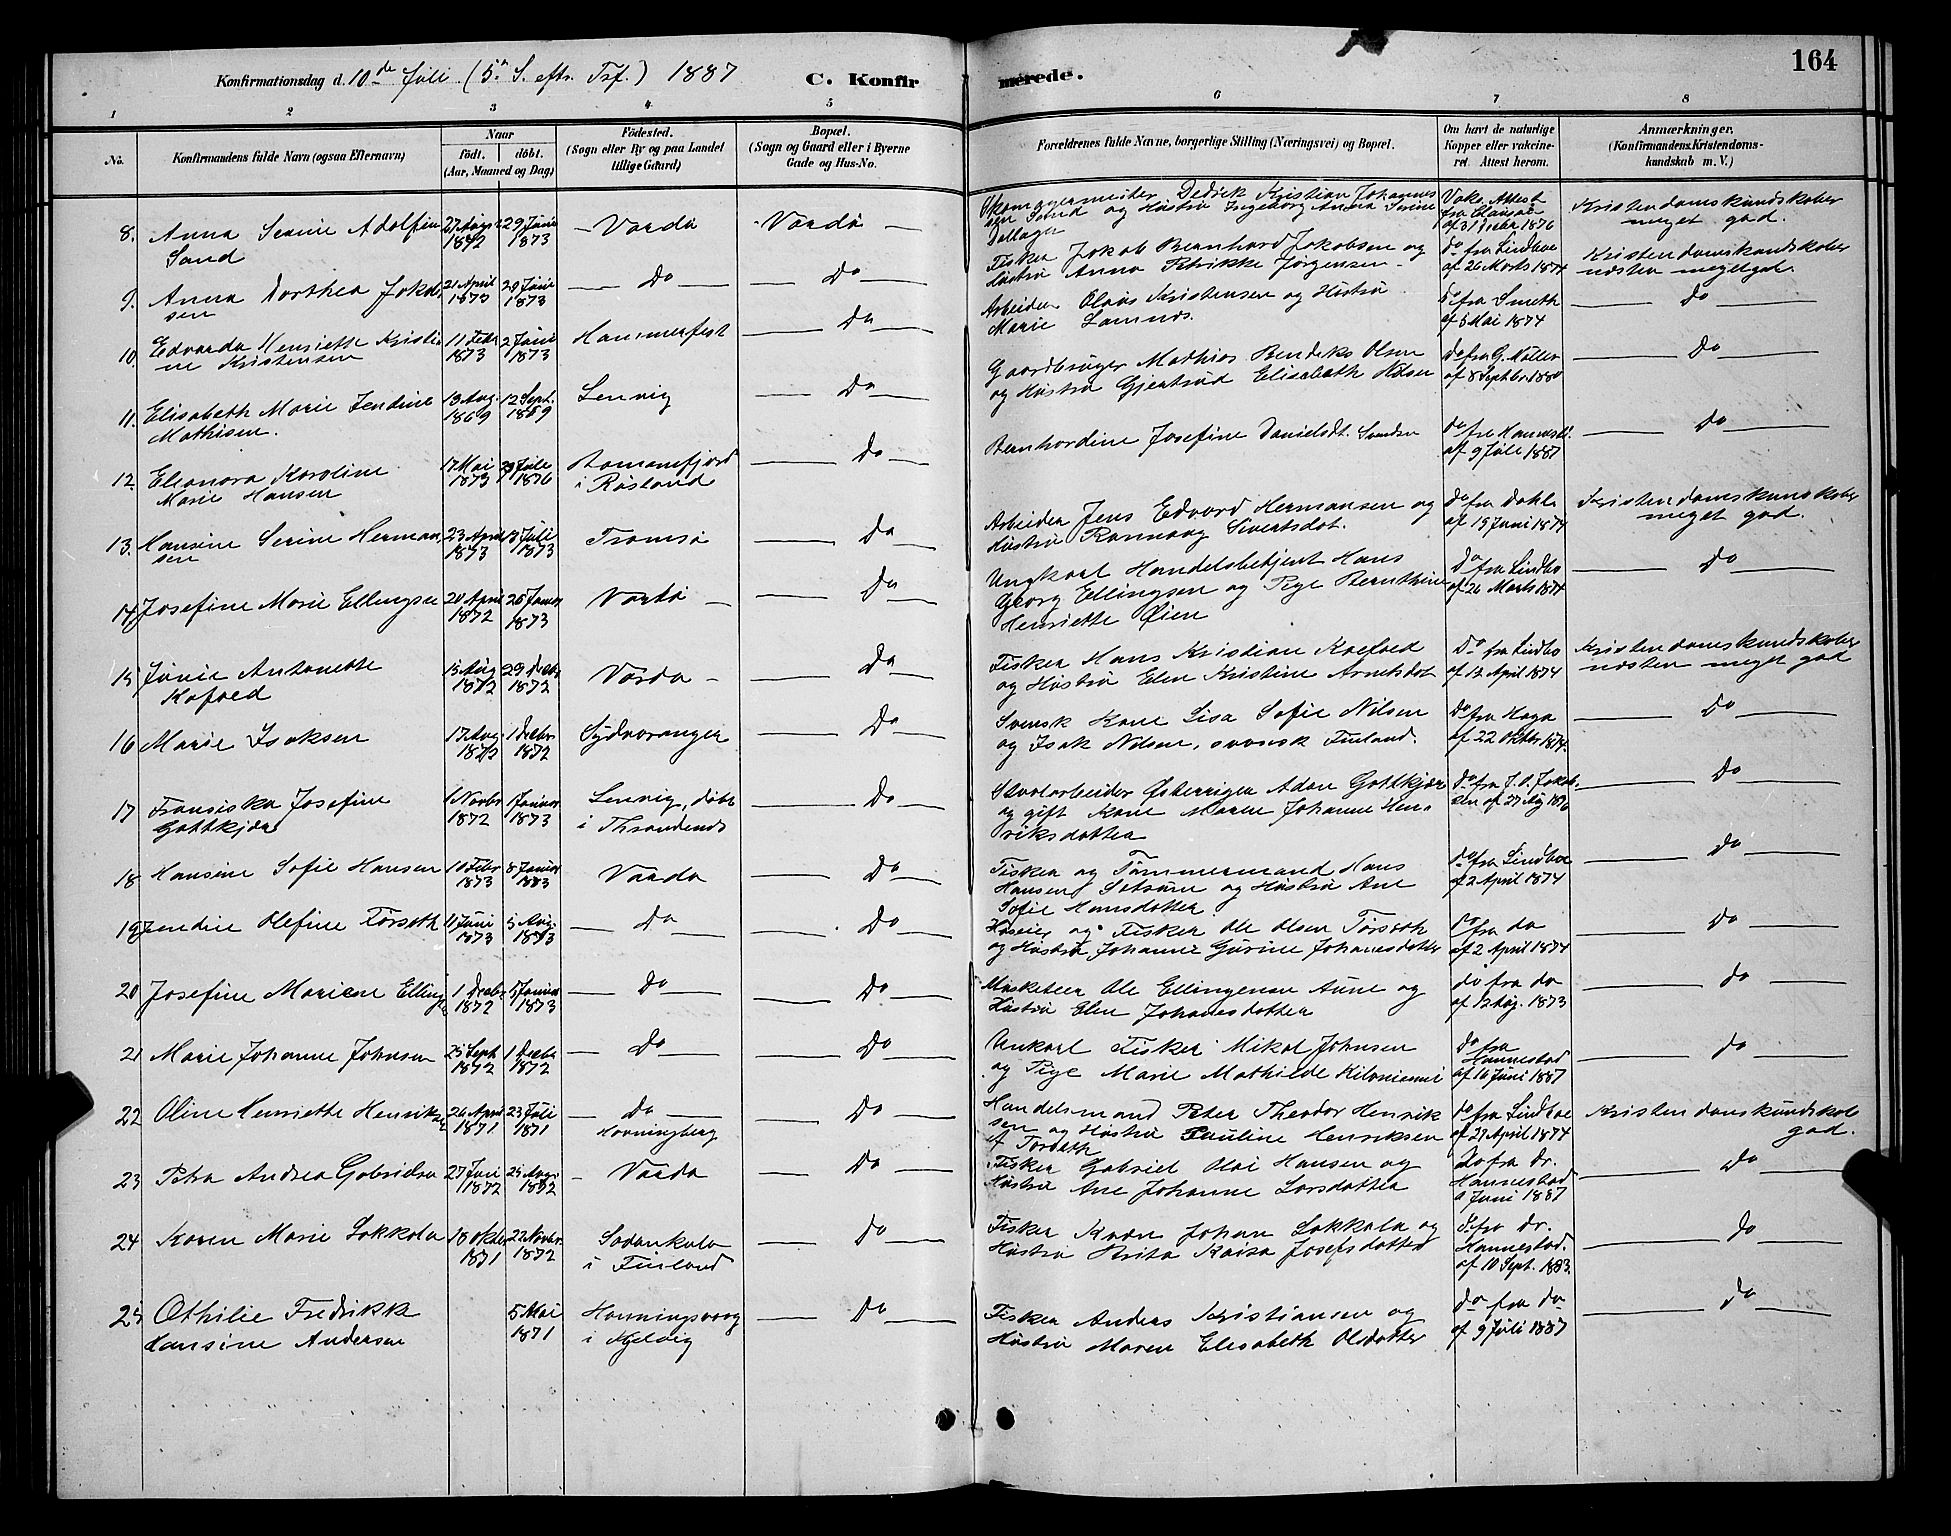 164
Konfirmationsdag d. 10de Juli (5. S. eftr. Tref.) 1887
C. Konfirmerede.
1 2 3 4 5 6 7 8
No.
Konfirmandens fulde Navn (ogsaa Efternavn)
Naar
født. døbt.
(Aar, Maaned og Dag)
Fødested.
(Sogn eller By og paa Landet
tillige Gaard)
Bopæl.
(Sogn og Gaard eller i Byerne
Gade og Hus-No.
Forældrenes fulde Navne, borgerlige Stilling (Næringsvei) og Bopæl.
Om havt de naturlige
Kopper eller vakcine-
ret. Attest herom.
Anmærkninger.
(Konfirmandens Kristendoms-
kundskab m. V.)
8. Anna Serine Adolfine 29 Juni Vardø Vardø
Sand 1873
Skomagermester Dedrik Kristian Johannes
sen Sand og Hustru Ingeborg Anna Serine
Dellager
Vakc. Attest
fra Clausen
af 31 1876
Kristendomskundskaber
meget god.
9. Anna Dorthea Jakob 21 April 29 Juni Do Do
sen 1873 1873
Fisker Jakob Bernhard Jakobsen og
Hustru Anna Petrikke Jørgensen
do fra Lindboe
af 26 Marts 1874
Kristendomskundskaber
næsten meget god.
10. Edvarda Henriette Kristi 11 Febr 2 Juni Hammerfest Do
ne Kristensen 1873 1873
Arbeider Olaus Kristensen og Hustru
Marie Lamnos.
do fra Smeth
af 5 Mai 1874
Do
11. Elisabeth Marie Jendine 13 Aug. 12 Sept. Lenvig Do
Mathisen. 1869 1869
Gaardbruger Mathias Bendiks Olsen
og Hustru Gjertrud Elisabeth
do fra G. Møller
af 8 Septbr 1880
Do
12. Eleonora Karoline 17 Mai 29 Juli Do
Marie Hansen 1873 1876 i Røsland
Bernhardine Josefine Danielsdt.
do fra
af 9 Juli 1887
Do
13. Hansine Serine Herman 23 April 13 Juli Tromsø Do
sen 1873 1873
Arbeider Jens Edvard Hermansen og
Hustru Rannaag Sivertsdot.
do fra Dahl
af 19 Juni 1874
Kristendomskundskaber
meget god.
14. Josefine Marie Ellingsen 20 April 26 Januar Vardø Do
1872 1873
Ungkarl Handelsbetjent Hans
Georg Ellingsen og Pige Bernthine
Henriette Øien
do fra Lindbo
af 26 Marts 1874
Do
15 Junie Antonette 15 Aug 29 Decbr Vardø Do
Kofoed 1872 1872
Fisker Hans Kristian Koefoed
og Hustru Elen Kristine Arnetsdot
Do fra Lindbo
af 12 April 1874
Kristendomskundskaber
næsten meget god
16 Marie Isaksen 17 Aug 1 Decbr Sydvaranger Do
1872 1872
Svensk Kone Lisa Sofie Nilsen
og Isak Nilsen, svensk Finland.
Do fra Haga
af 22 Oktbr 1874.
Do
17 Fransiska Josefine 1 Novbr 1 Januar Lenvig, døbt Do
Gottkjær 1872 1873 i Throndenes
Østerriger Adam Gottkjær
og gift Kone Maren Johanne Hen
riksdatter
do fra J. O. Jakob
sen af 27 Aug 1876
Do
18 Hansine Sofie Hansen 10 Febr 8 Januar Vardø Do
1873 1883
Fisker og Tømmermand Hans
Hansen og Hustru Ane
Sofie Hansdatter
do fra Lindboe
af 2 April 1874
Do
19 Jendine Olefine Torseth 11 Juni 5 Aug. Do Do
1873 1873
Huseier og Fisker Ole Olsen Torseth
og Hustru Johanne Gurine Johanesdatter
do fra do
af 2 April 1874
Do
20 Josefine Mariene Elling 1 Decbr 5 Januar Do Do
1872 1873
Musketeer Ole Ellingensen Aune og
Hustru Elen Johanesdatter
do fra do
af 12 Aug. 1873
Do
21 Marie Johanne Johnsen 25 Sept 1 Decbr Do Do
1872 1872
Unkarl Fisker Mikal Johnsen
og Pige Marie Mathilde Kilvniemi
Do fra
Hannestad
af 16 Juni 1887
Do
22 Oline Henriette Henriksen 26 April 23 Juli Do Do
1871 1871 Havningberg
Handelsmand Peter Theodor Henrik
sen og Hustru Pauline Henriksen
f Tordath
do fra Lindboe
af 27 April 1874
Kristendomskundskab
god.
23 Petra Andrea Gabrielsen 27 Juni 25 Aug. Vardø Do
1872 1872
Fisker Gabriel Hansen og
Hustru Ane Johanne Larsdatter
Do fra Dr.
Hannestad
Juni 1887
Do
24 Karen Marie Lokkola 18 Oktbr 22 Novbr. Sodankola Do
1871 1872 i Finland
Fisker Karn Johan Lokkala og
Hustru Brita Kaisa Josefsdatter
do fra Dr.
Hannestad.
af 10 Sept. 1883
Do
25 Othilie Fredrikk 5 Mai Honningsvaag Do
Hansine Andersen 1871 i Kjelvig
Fisker Anders Kristiansen og
Hustru Maren Elisabeth Olsdatter
Do fra do
af 9 Juli 1887
Do